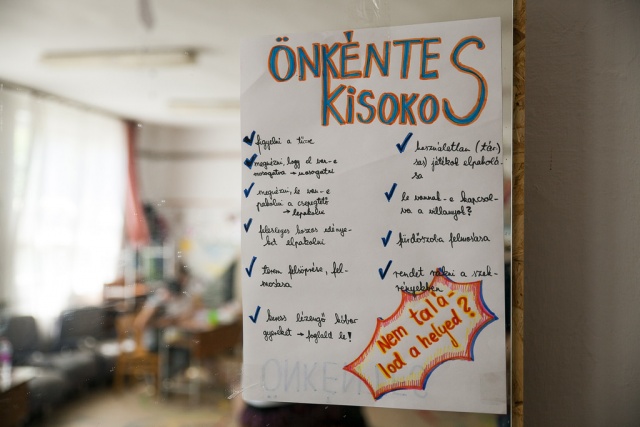 ÖNKÉNTES
KISOKOS
figyelni a tűzre
megnézni, hogy el van-e
mosogatva → mosogatni
megnézni, le van-e
pakolni a csepegtető
→ lepakolni
felesleges koszos edénye-
ket elpakolni
terem felsöprése, fel-
mosása
keress lézengő kóbor
gyereket → foglald le!
használatlan (tár-
sas) játékok elpakolá-
sa
le vannak-e kapcsol-
va a villanyok?
fürdőszoba felmosása
rendet rakni a szek-
rényekben
Nem talá-
lod a helyed?
ÖNKÉNTES